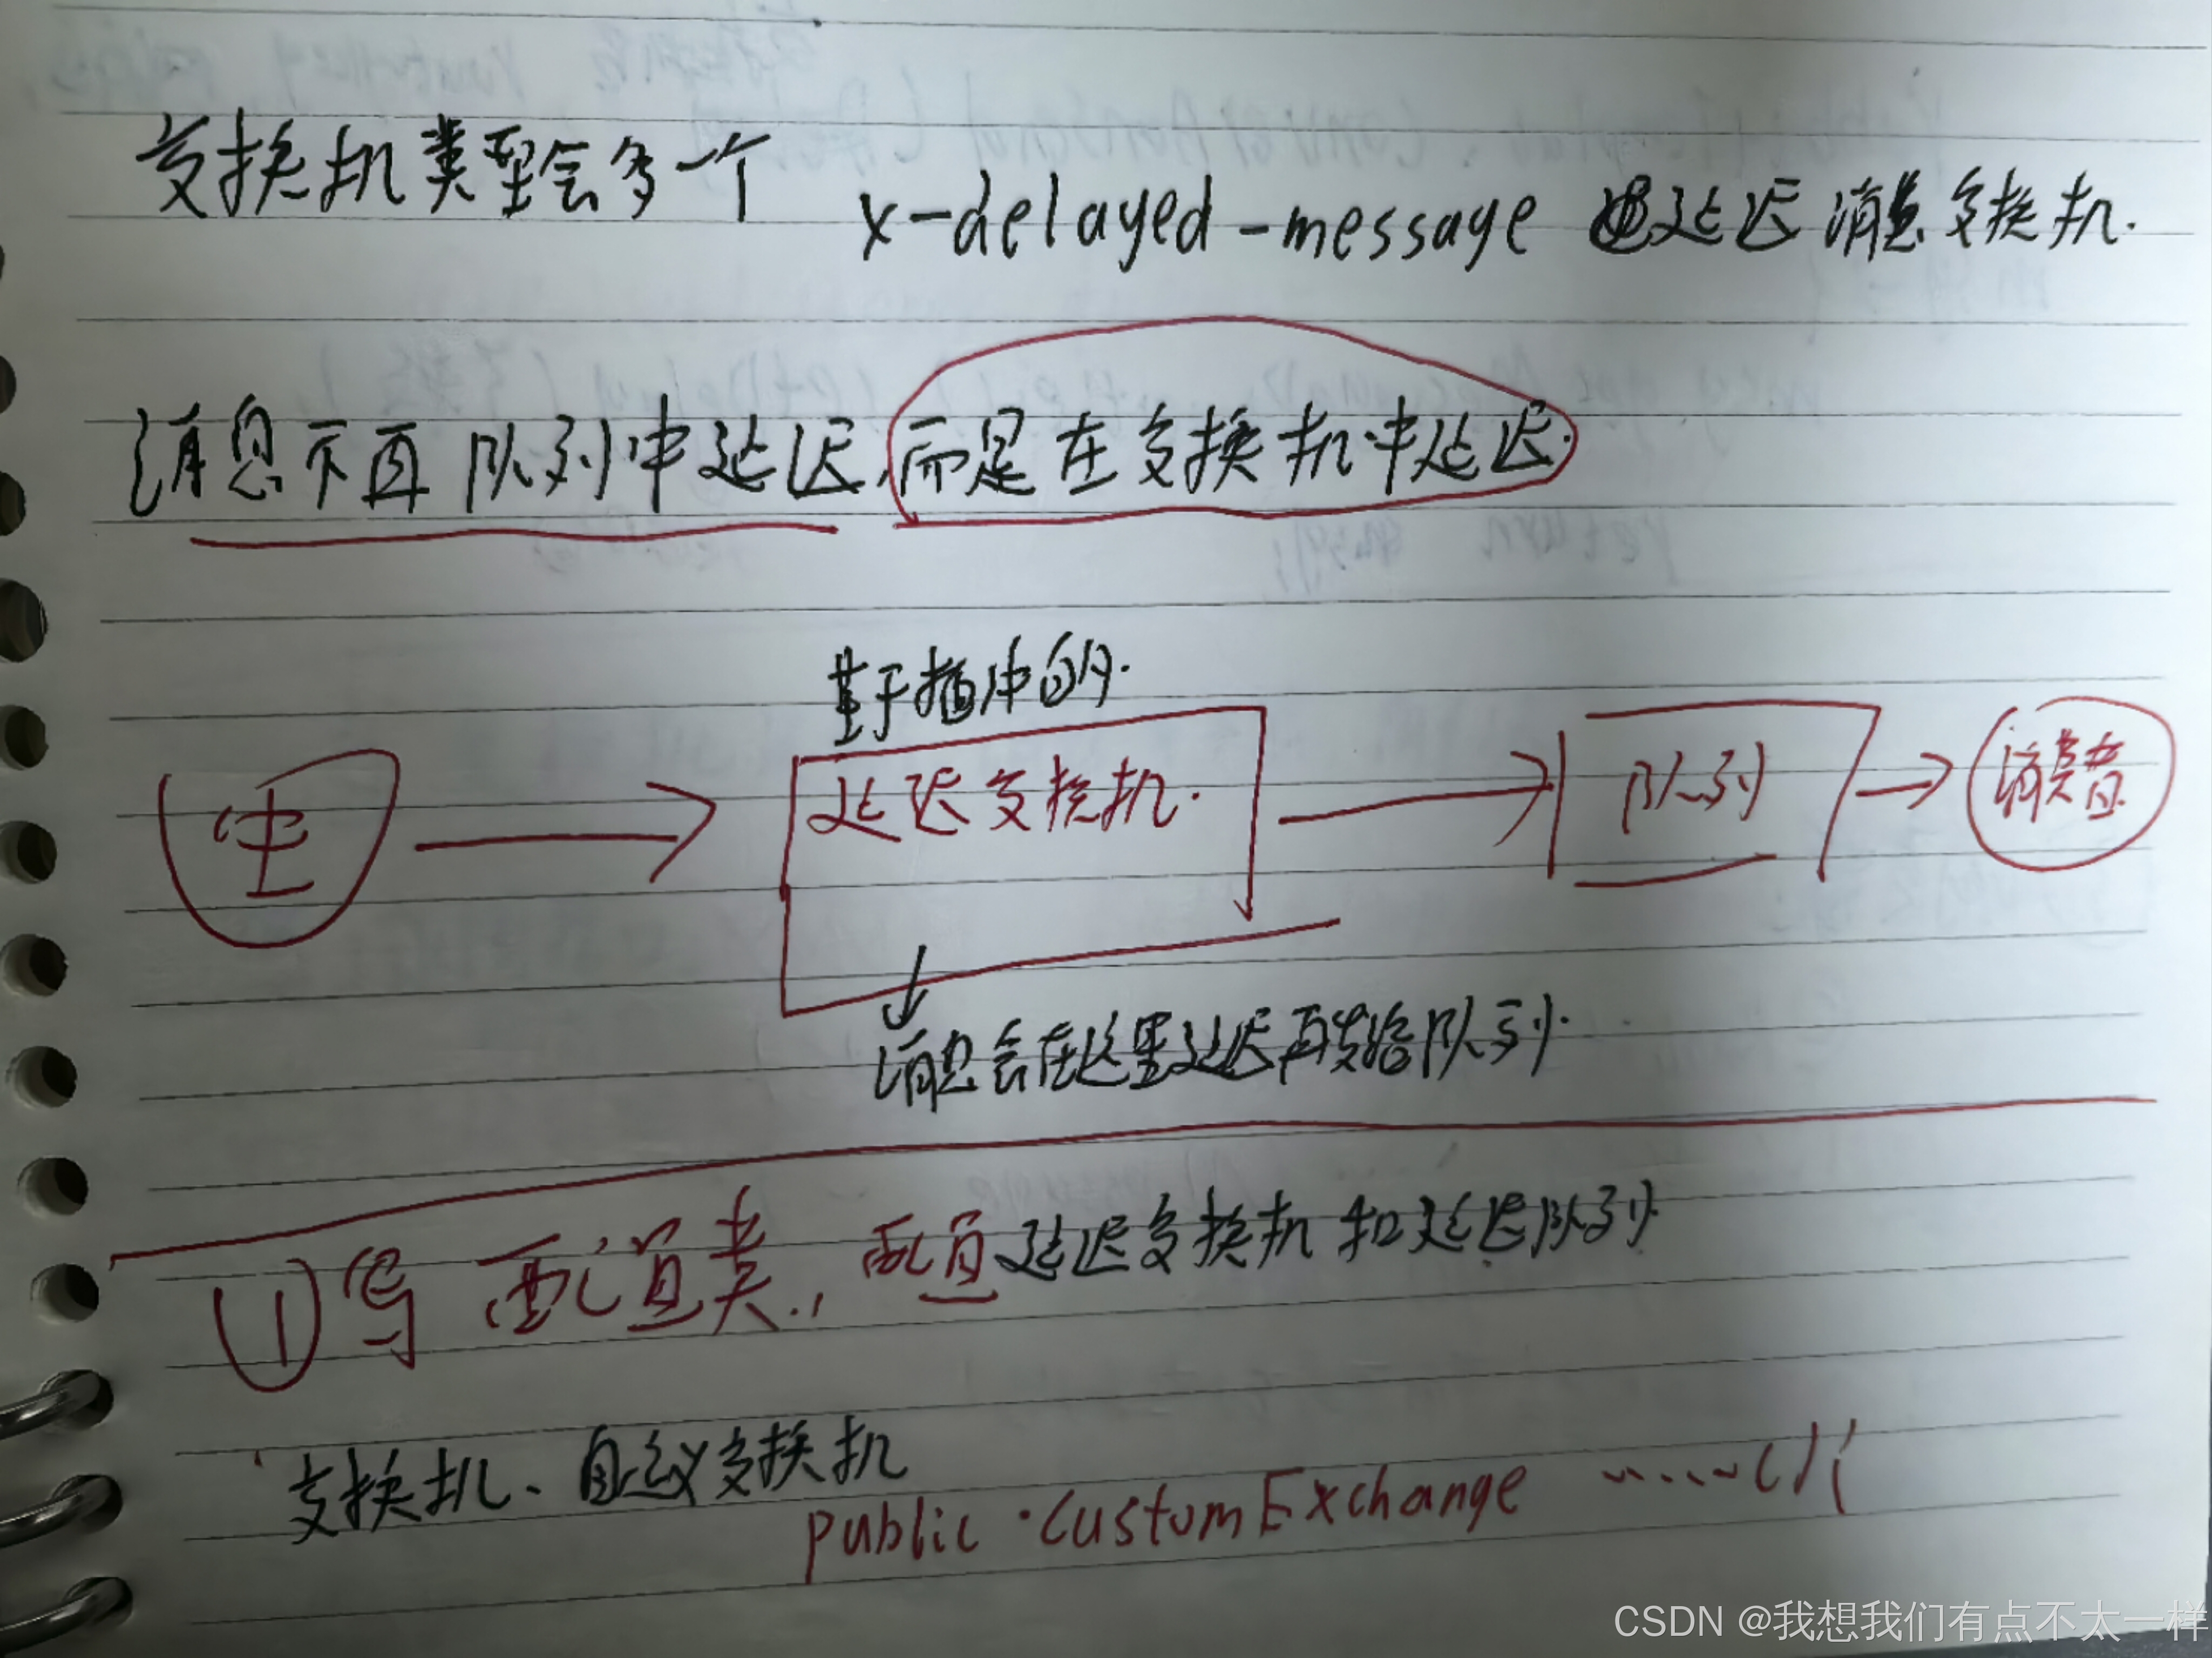 交换机类型会多一个 x-delayed-message 延迟消息交换机.
消息不再队列中延迟,而是在交换机中延迟.
基于插件的.
生
延迟交换机.
队列
消费者
消息会在这里延迟再发给队列.
①写 配置类., 配置延迟交换机和延迟队列
交换机、自定义交换机
public CustomExchange ......(){
CSDN @我想我们有点不太一样